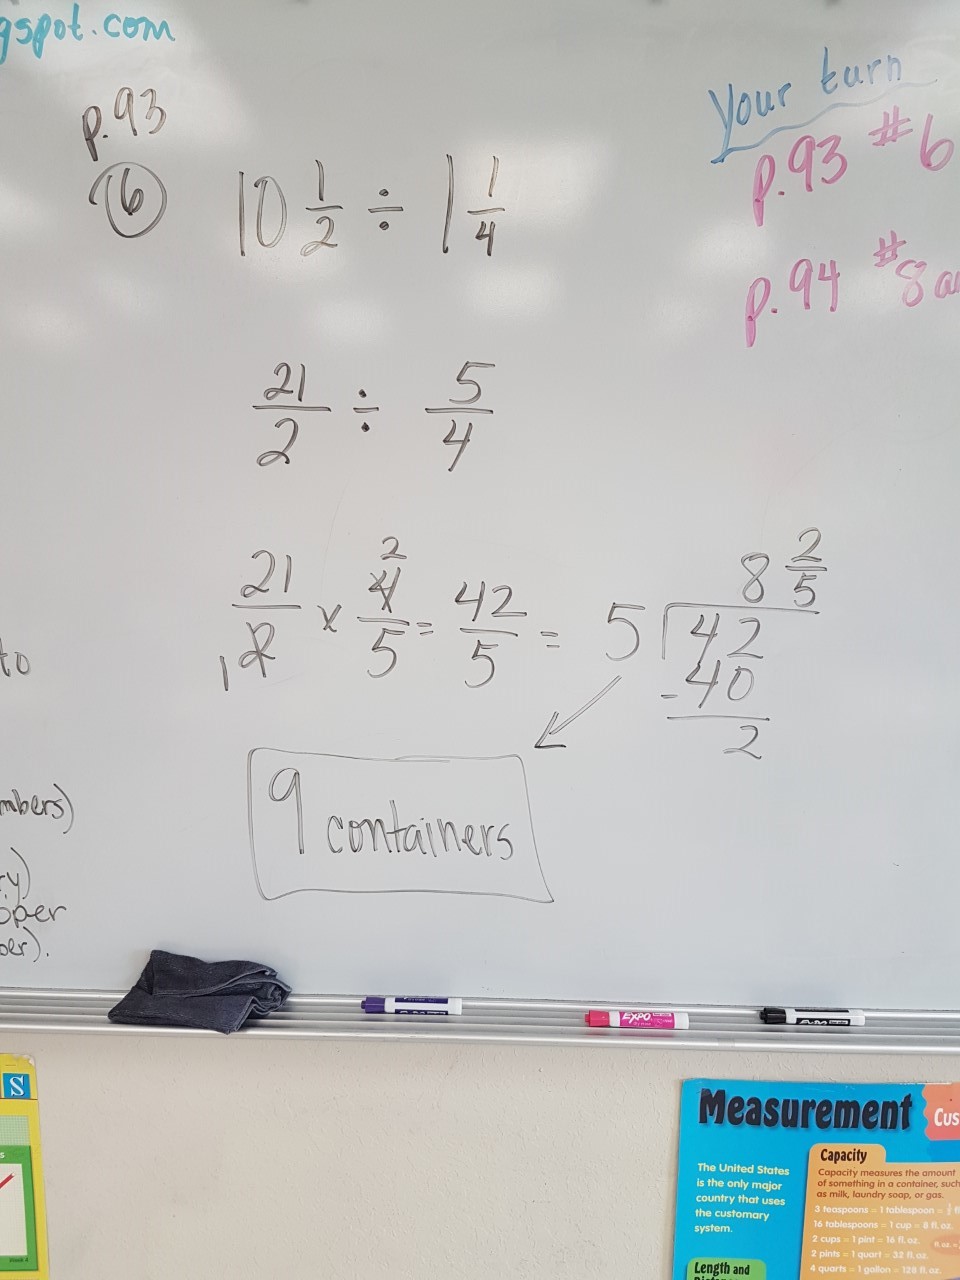 gspot.com
p.93
6
10 1/2 ÷ 1 1/4
21/2 ÷ 5/4
21/2 x 4/5 = 42/5 = 5 42
1 2
8 2/5
-40
2
9 containers
Your turn
p.93 #6
p.94 #8
to
mbers)
ry)
oper
ber).
EXPO
S
Measurement
Cus
The United States
is the only major
country that uses
the customary
system.
Capacity
Capacity measures the amount
of something in a container, such
as milk, laundry soap, or gas.
3 teaspoons = 1 tablespoon =
16 tablespoons = 1 cup = 8 fl. oz.
2 cups = 1 pint = 16 fl. oz.
2 pints = 1 quart = 32 fl. oz.
4 quarts = 1 gallon = 128 fl. oz.
Length and